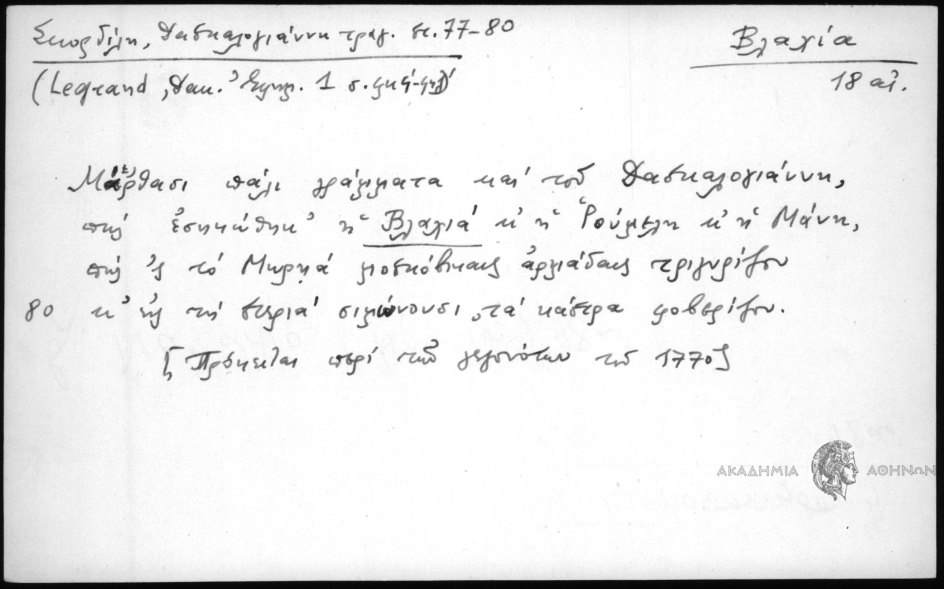 Σκορδίλη, Δασκαλογιάννη τραγ. στ. 77-80
Βλαχία
(Legrand, Δακ. Ἐφημ. 1 σ.
18 αἰ.
Μἄρθασι πάλι γράμματα καὶ τοῦ Δασκαλογιάννη,
πὼς ἐσηκώθηκ' ἡ Βλαχιά κ' ἡ Ρούμελη κ' ἡ Μάνη,
πὼς 'ς τὸ Μωρηά μοσκόβικαις ἀρμάδαις τριγυρίζου
80 κ' εἰς τὴ στεριά σιμώνουσι, τὰ κάστρα φοβερίζου.
[Πρόκειται περὶ τῶν γεγονότων τοῦ 1770]
ΑΚΑΔΗΜΙΑ ΑΘΗΝΩΝ